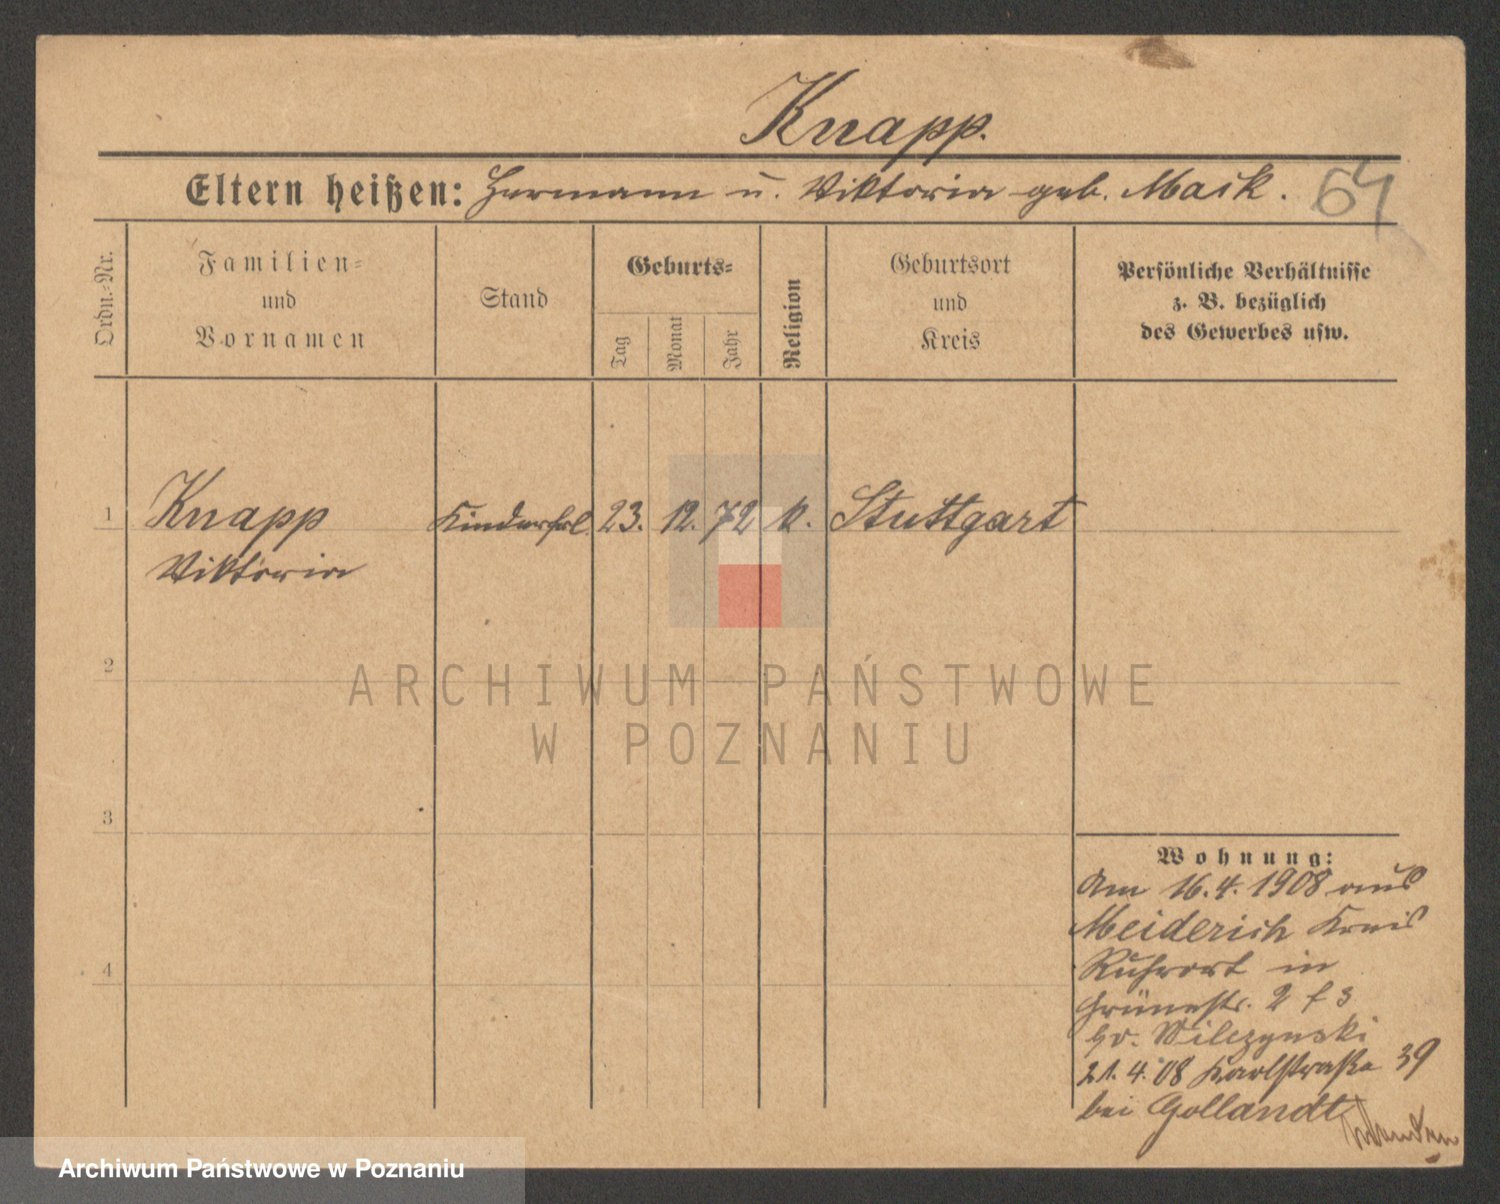 Knapp.
Eltern heißen: Hermann u. Viktoria geb. Maik.
64
Ordn.-Nr.
Familien-
und
Vornamen
Stand
Geburts-
Tag
Monat
Jahr
Religion
Geburtsort
und
Kreis
Persönliche Verhältnisse
z. B. bezüglich
des Gewerbes usw.
1 Knapp Kinderfrl. 23. 12. 72 k. Stuttgart
Viktoria
2
ARCHIWUM PAŃSTWOWE
W POZNANIU
3
4
Wohnung:
Am 16.4.1908 aus
Meiderich Kreis
Ruhrort in
Grünestr. 2 f 3
Wilczynski
21.4.08 Karlstraße 39
bei Gollandt
Archiwum Państwowe w Poznaniu